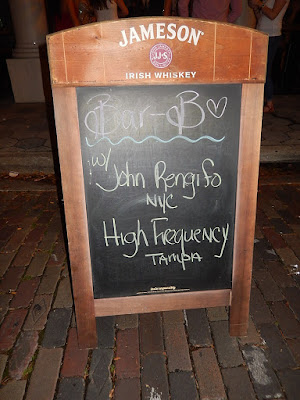 JAMESON
JJ&S
IRISH WHISKEY
Bar-B♡
w/
John Rengifo
NYC
High Frequency
TAMPA